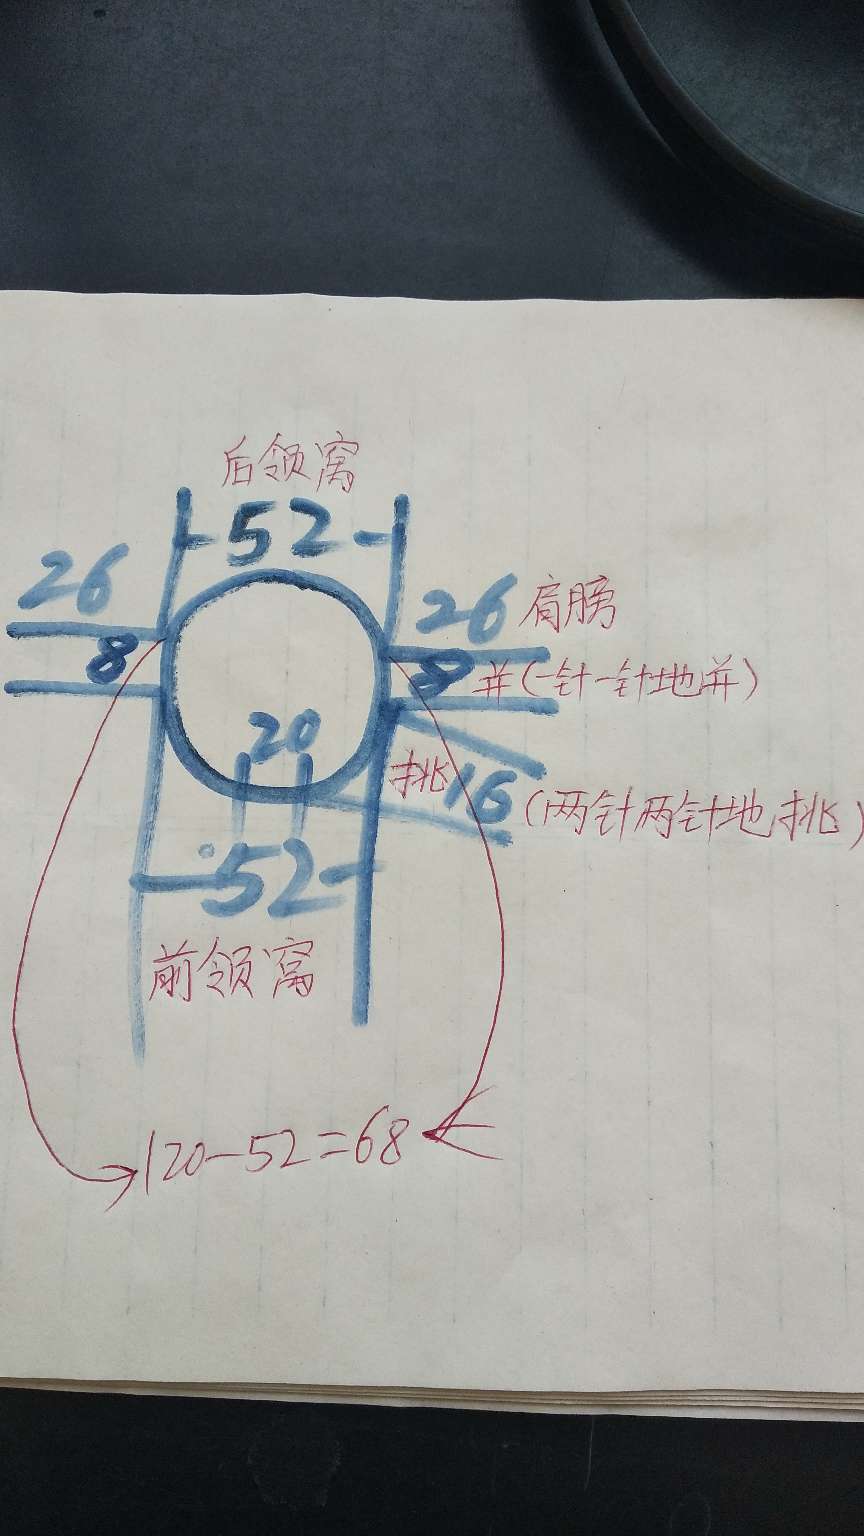 后领窝
52
26
26 肩膀
8
8 并(一针一针地并)
20
挑 16 (两针两针地挑)
52
前领窝
120-52=68